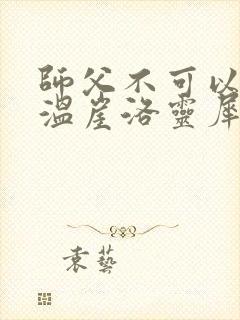 師父不可以
溫崖洛靈犀
袁藝